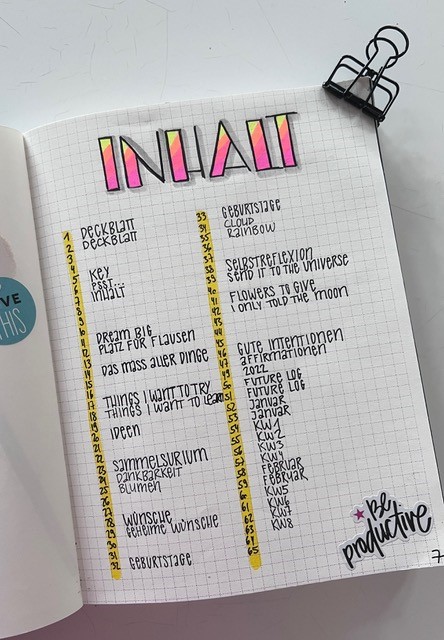 INHALT
1 DECKBLATT
2 DECKBLATT
3
4
5 KEY
6 PSST...
7 INHALT
8
9
10 DREAM BIG
11 PLATZ FÜR FLAUSEN
12
13 DAS MASS ALLER DINGE
14
15
16 THINGS I WANT TO TRY
17 THINGS I WANT TO LEARN
18
19 IDEEN
20
21
22 SAMMELSURIUM
23 DANKBARKEIT
24 BLUMEN
25
26
27 WÜNSCHE
28 GEHEIME WÜNSCHE
29
30
31 GEBURTSTAGE
32
33 GEBURTSTAGE
34 CLOUD
35 RAINBOW
36
37 SELBSTREFLEXION
38 SEND IT TO THE UNIVERSE
39
40 FLOWERS TO GIVE
41 I ONLY TOLD THE MOON
42
43
44 GUTE INTENTIONEN
45 AFFIRMATIONEN
46 2022
47 FUTURE LOG
49 FUTURE LOG
50 JANUAR
51 JANUAR
52 KW1
53 KW2
54 KW3
55 KW4
56 FEBRUAR
57 FEBRUAR
58 KW5
59 KW6
60 KW7
61 KW8
62
63
64
65
Be
productive
7
VE
THIS